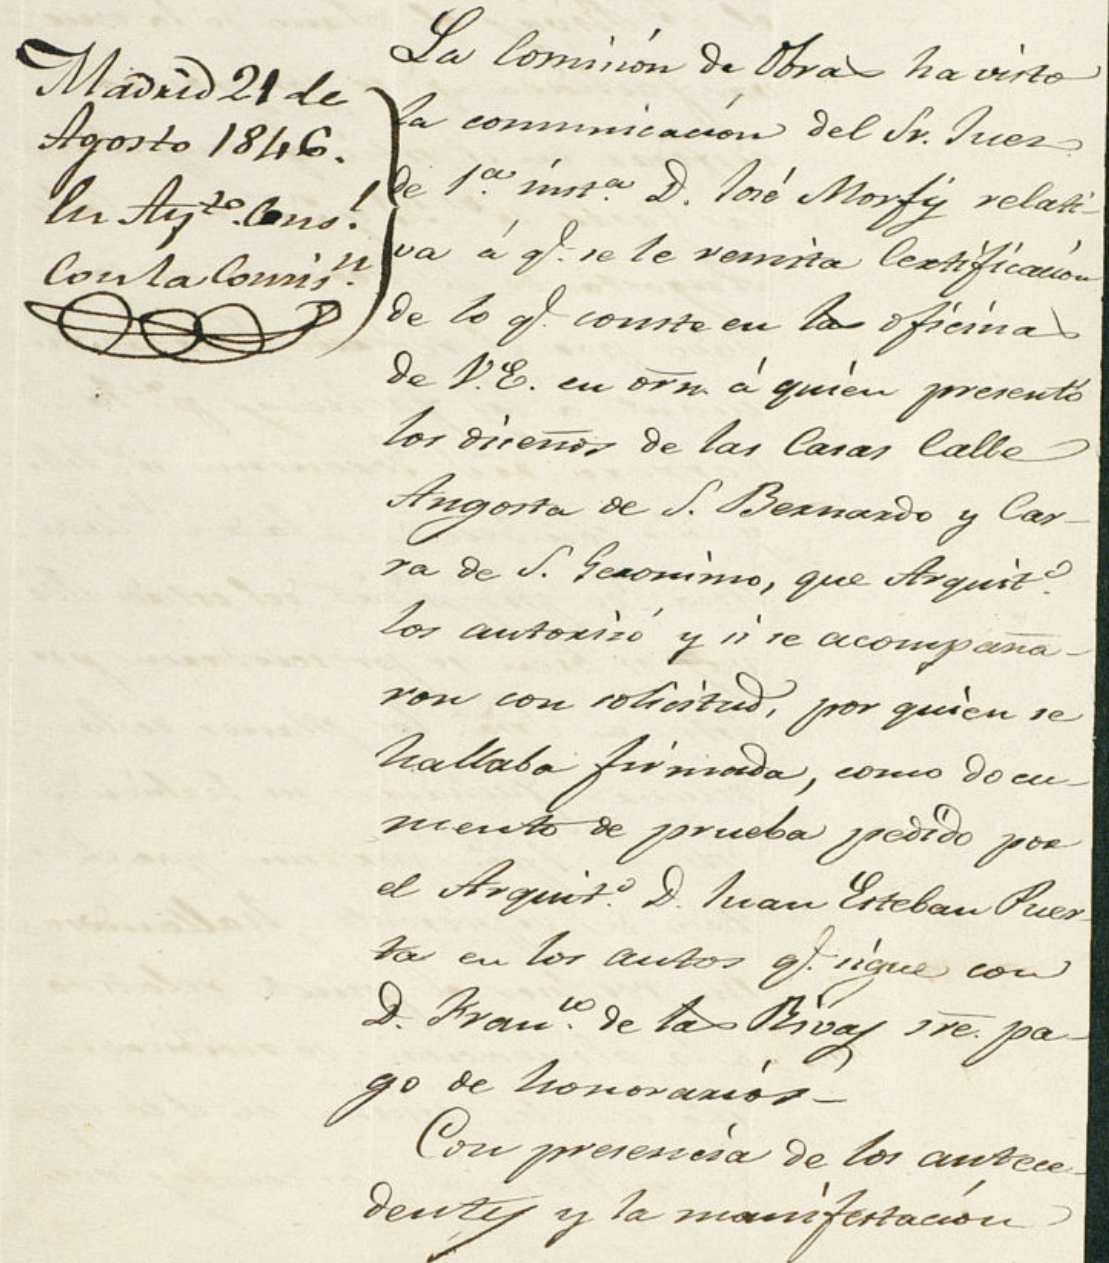 Madrid 21 de
Agosto 1846.
En Ay.to Cons.l
Con la Comis.n
La Comision de Obras ha visto
la comunicacion del Sr. Juez
de 1.a inst.a D. José Morfy relati-
va á q.e se le remita Certificacion
de lo q.e conste en las oficinas
de V.E. en orn. á quien presentó
los diseños de las Casas Calle
Angosta de S. Bernardo y Car-
ra de S. Geronimo, que Arquit.o
los autorizó y si se acompaña-
ron con solicitud, por quien se
hallaba firmada, como docu-
mento de prueba pedido por
el Arquit.o D. Juan Esteban Puer-
ta en los autos q.e sigue con
D. Fran.co de las Rivas sre. pa-
go de honorarios-
Con presencia de los antece-
dentes y la manifestacion